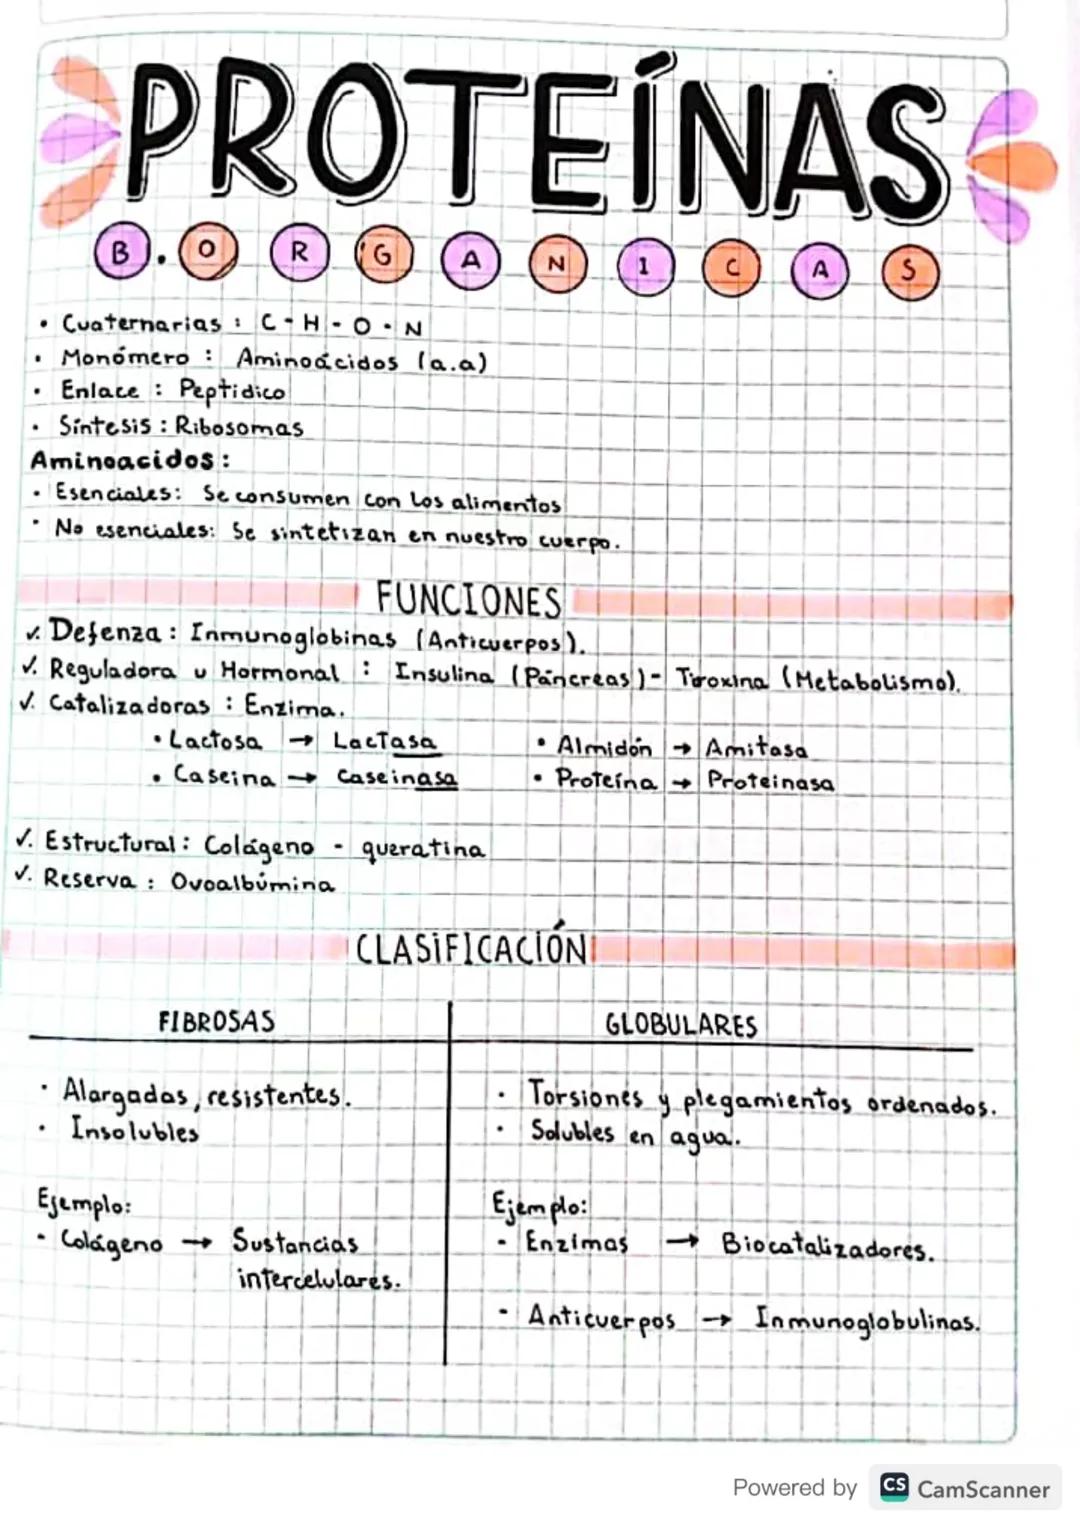 PROTEÍNAS
B. ORGANICAS
• Cuaternarias : C - H - O - N
• Monómero : Aminoácidos (a.a)
• Enlace : Peptidico
• Síntesis : Ribosomas
Aminoacidos :
• Esenciales: Se consumen con los alimentos
• No esenciales: Se sintetizan en nuestro cuerpo.
FUNCIONES
✓. Defenza : Inmunoglobinas (Anticuerpos).
✓. Reguladora u Hormonal : Insulina (Páncreas) - Tiroxina (Metabolismo).
✓. Catalizadoras : Enzima.
• Lactosa → Lactasa • Almidón → Amitasa
• Caseina → caseinasa • Proteína → Proteinasa
✓. Estructural : Colágeno - queratina
✓. Reserva : Ovoalbúmina
CLASIFICACIÓN
FIBROSAS
• Alargadas, resistentes.
• Insolubles
Ejemplo:
• Colágeno → Sustancias
intercelulares.
GLOBULARES
• Torsiones y plegamientos ordenados.
• Solubles en agua.
Ejemplo:
• Enzimas → Biocatalizadores.
• Anticuerpos → Inmunoglobulinas.
Powered by CS CamScanner